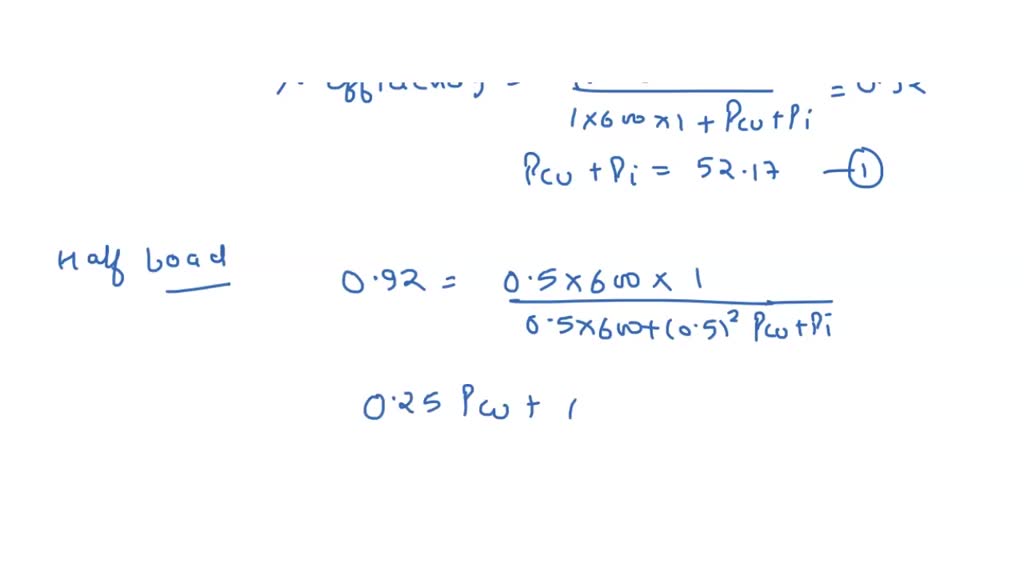 =
1×600×1 + Pcu+Pi
Pcu + Pi = 52.17 —①
Half Load
0.92 = 0.5×600 × 1
0.5×600+(0.5)² Pcu+Pi
0.25 Pcu + (